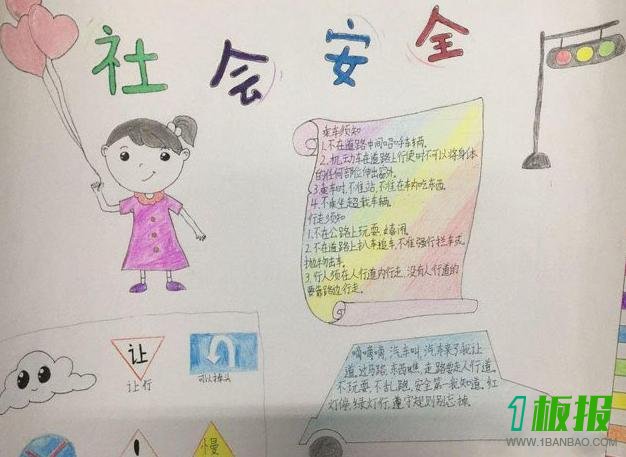 社会安全
乘车须知
1.不在道路中间招呼车辆。
2.机动车在道路上行使时不可以将身体
的任何部位伸出窗外。
3.乘车时,不准站,不准在车内吃东西。
4.不乘坐超载车辆。
行走须知
1.不在公路上玩耍、嬉闹。
2.不在道路上扒车追车,不准强行拦车或
抛物击车。
3.行人须在人行道内行走,没有人行道的
要靠路边行走。
让
让行
可以掉头
慢
嘀嘀嘀,汽车叫,汽车来了我让
道,过马路,东西瞧,走路要走人行道。
不玩耍,不乱跑,安全第一我知道,红
灯停,绿灯行,遵守规则别忘掉。
1板报
WWW.1BANBAO.COM